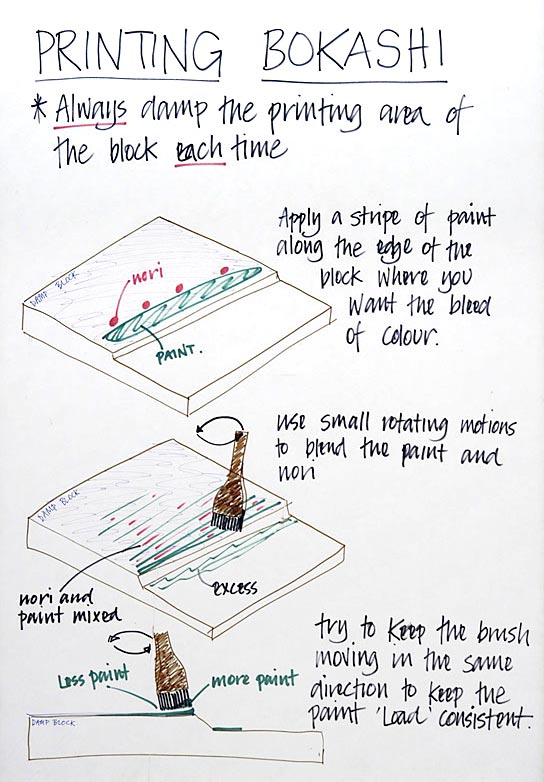 PRINTING BOKASHI
* Always damp the printing area of
the block each time
Apply a stripe of paint
along the edge of the
block where you
want the bleed
of colour.
DAMP BLOCK
nori
PAINT.
use small rotating motions
to blend the paint and
nori
DAMP BLOCK
excess
nori and
paint mixed
try to keep the brush
moving in the same
direction to keep the
paint 'load' consistent.
Less paint
more paint
DAMP BLOCK